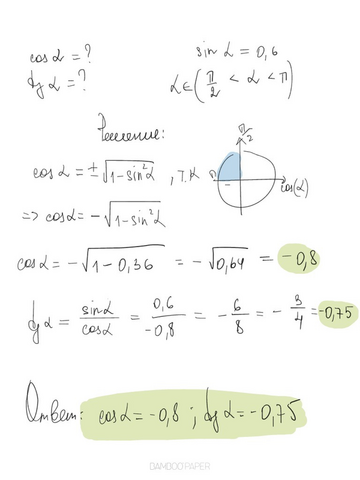 cos α = ?
sin α = 0,6
tg α = ?
α ∈ (π/2 < α < π)
Решение:
π/2
cos α = ± √(1 - sin²α) , т.к
π
-
cos(α)
=> cos α = - √(1 - sin²α)
cos α = - √(1 - 0,36) = - √0,64 = -0,8
tg α = sin α / cos α = 0,6 / -0,8 = - 6/8 = - 3/4 = -0,75
Ответ: cos α = -0,8 ; tg α = -0,75
BAMBOO PAPER